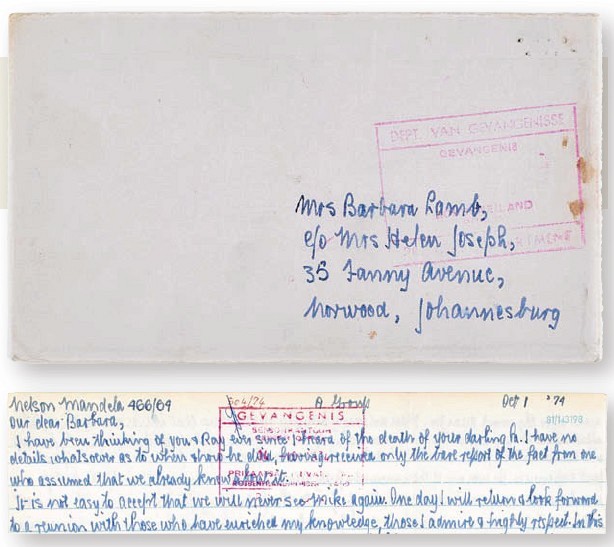 DEPT. VAN GEVANGENISSE
GEVANGENIS
Mrs Barbara Lamb,
c/o Mrs Helen Joseph,
35 Fanny Avenue,
Norwood, Johannesburg
Nelson Mandela 466/64
A Group
Oct 1 '74
Our dear Barbara,
GEVANGENIS
I have been thinking of you & Ray ever since I heard of the death of your darling Pa. I have no
details whatsoever as to when & how he died, having received only the bare report of the fact from one
who assumed that we already knew about it.
It is not easy to accept that we will never see Mike again. One day I will return & look forward
to a reunion with those who have enriched my knowledge, those I admire & highly respect. In this